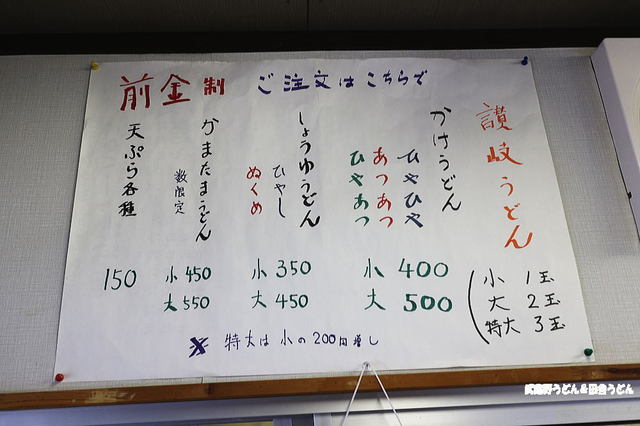 前金制 ご注文はこちらで
讃岐うどん
小 1玉
大 2玉
特大 3玉
かけうどん
ひやひや
あつあつ
ひやあつ
小 400
大 500
しょうゆうどん
ひやし
ぬくめ
小 350
大 450
かまたまうどん
数限定
小 450
大 550
天ぷら各種
150
※ 特大は小の200円増し
武蔵野うどん&田舎うどん